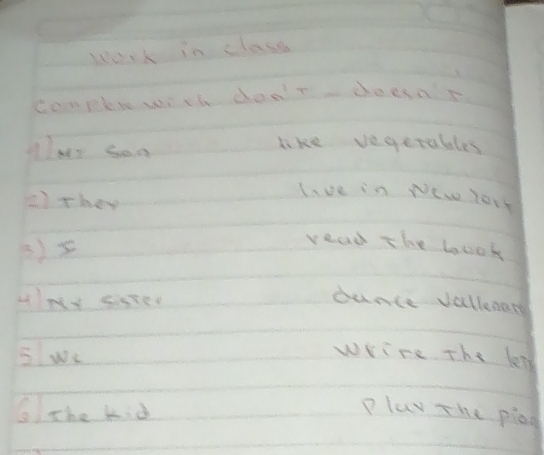 Work in class
Complete with don't - doesn't
1) My son like vegetables
2) They live in New York
3) I read the book
4) My sister dance vallenato
5) We write the
6) the kid play the